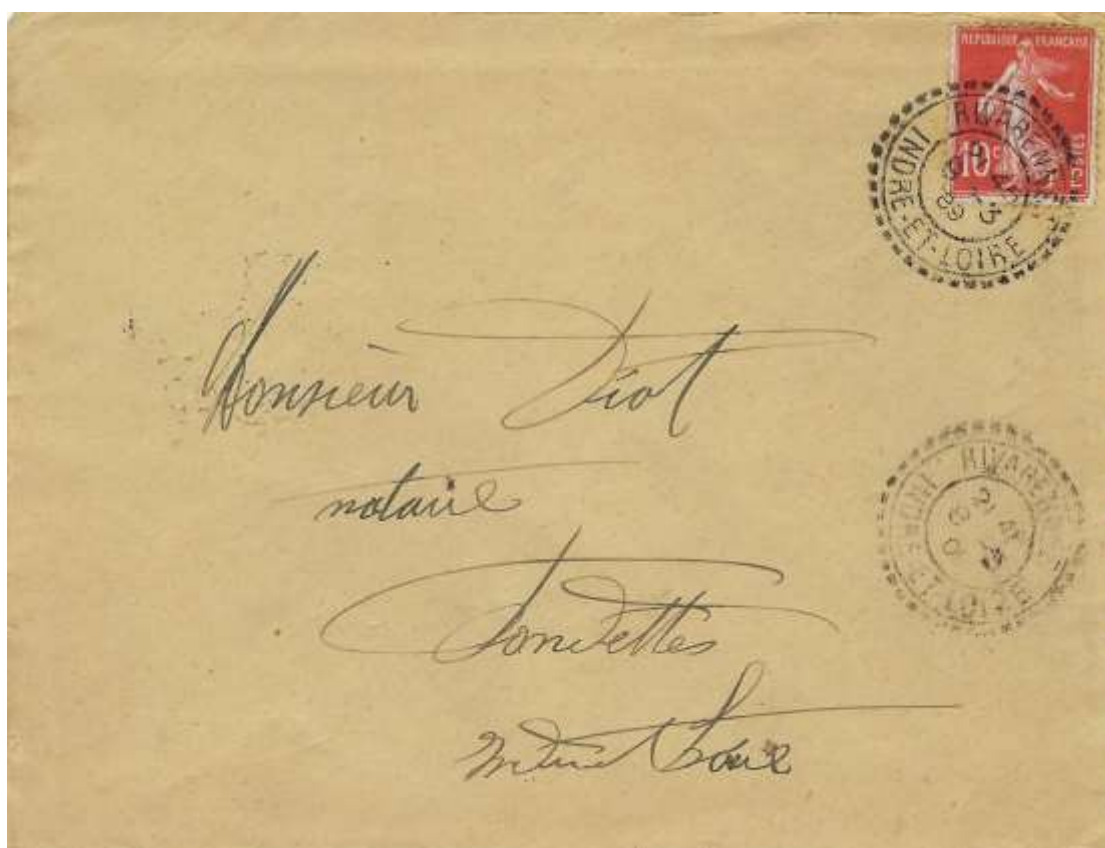 REPUBLIQUE FRANÇAISE
10c
POSTES
RIVARENNES
INDRE-ET-LOIRE
Monsieur Diot
notaire
Fondettes
Indre et Loire
RIVARENNES
INDRE-ET-LOIRE